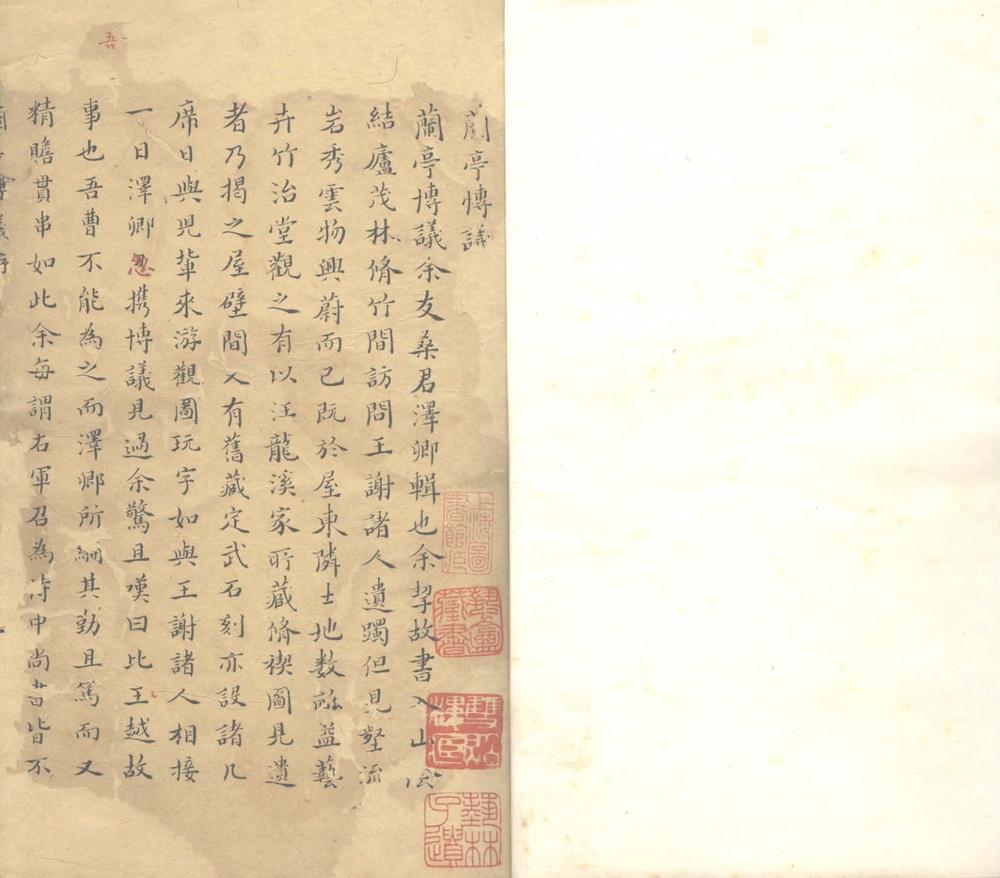 蘭亭博議
蘭亭博議余友桑君澤卿輯也余挈故書入山陰
結廬茂林脩竹間訪問王謝諸人遺躅但見壑流
岩秀雲物興蔚而已既於屋東隣士地数畝益藝
卉竹治堂觀之有以汪龍溪家所藏脩禊圖見遺
者乃揭之屋壁間又有舊藏定武石刻亦設諸几
席日與兒輩来游觀圖玩字如與王謝諸人相接
一日澤卿忽携博議見過余驚且嘆曰此王越故
事也吾曹不能為之而澤卿所紬其勤且篤而又
精贍貫串如此余每謂右軍召為侍中尚書皆不
吾
上海圖書館臧